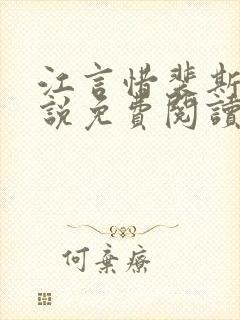 江言惜裴斯
說免費閱讀
何棄療